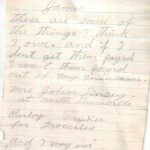 Jamie
These are some of
the things I think
I owe. and if I
dont get them payed
I want them payed
out of my
Mrs John
at north
Ruby Tucker
for Groceries
And I may owe